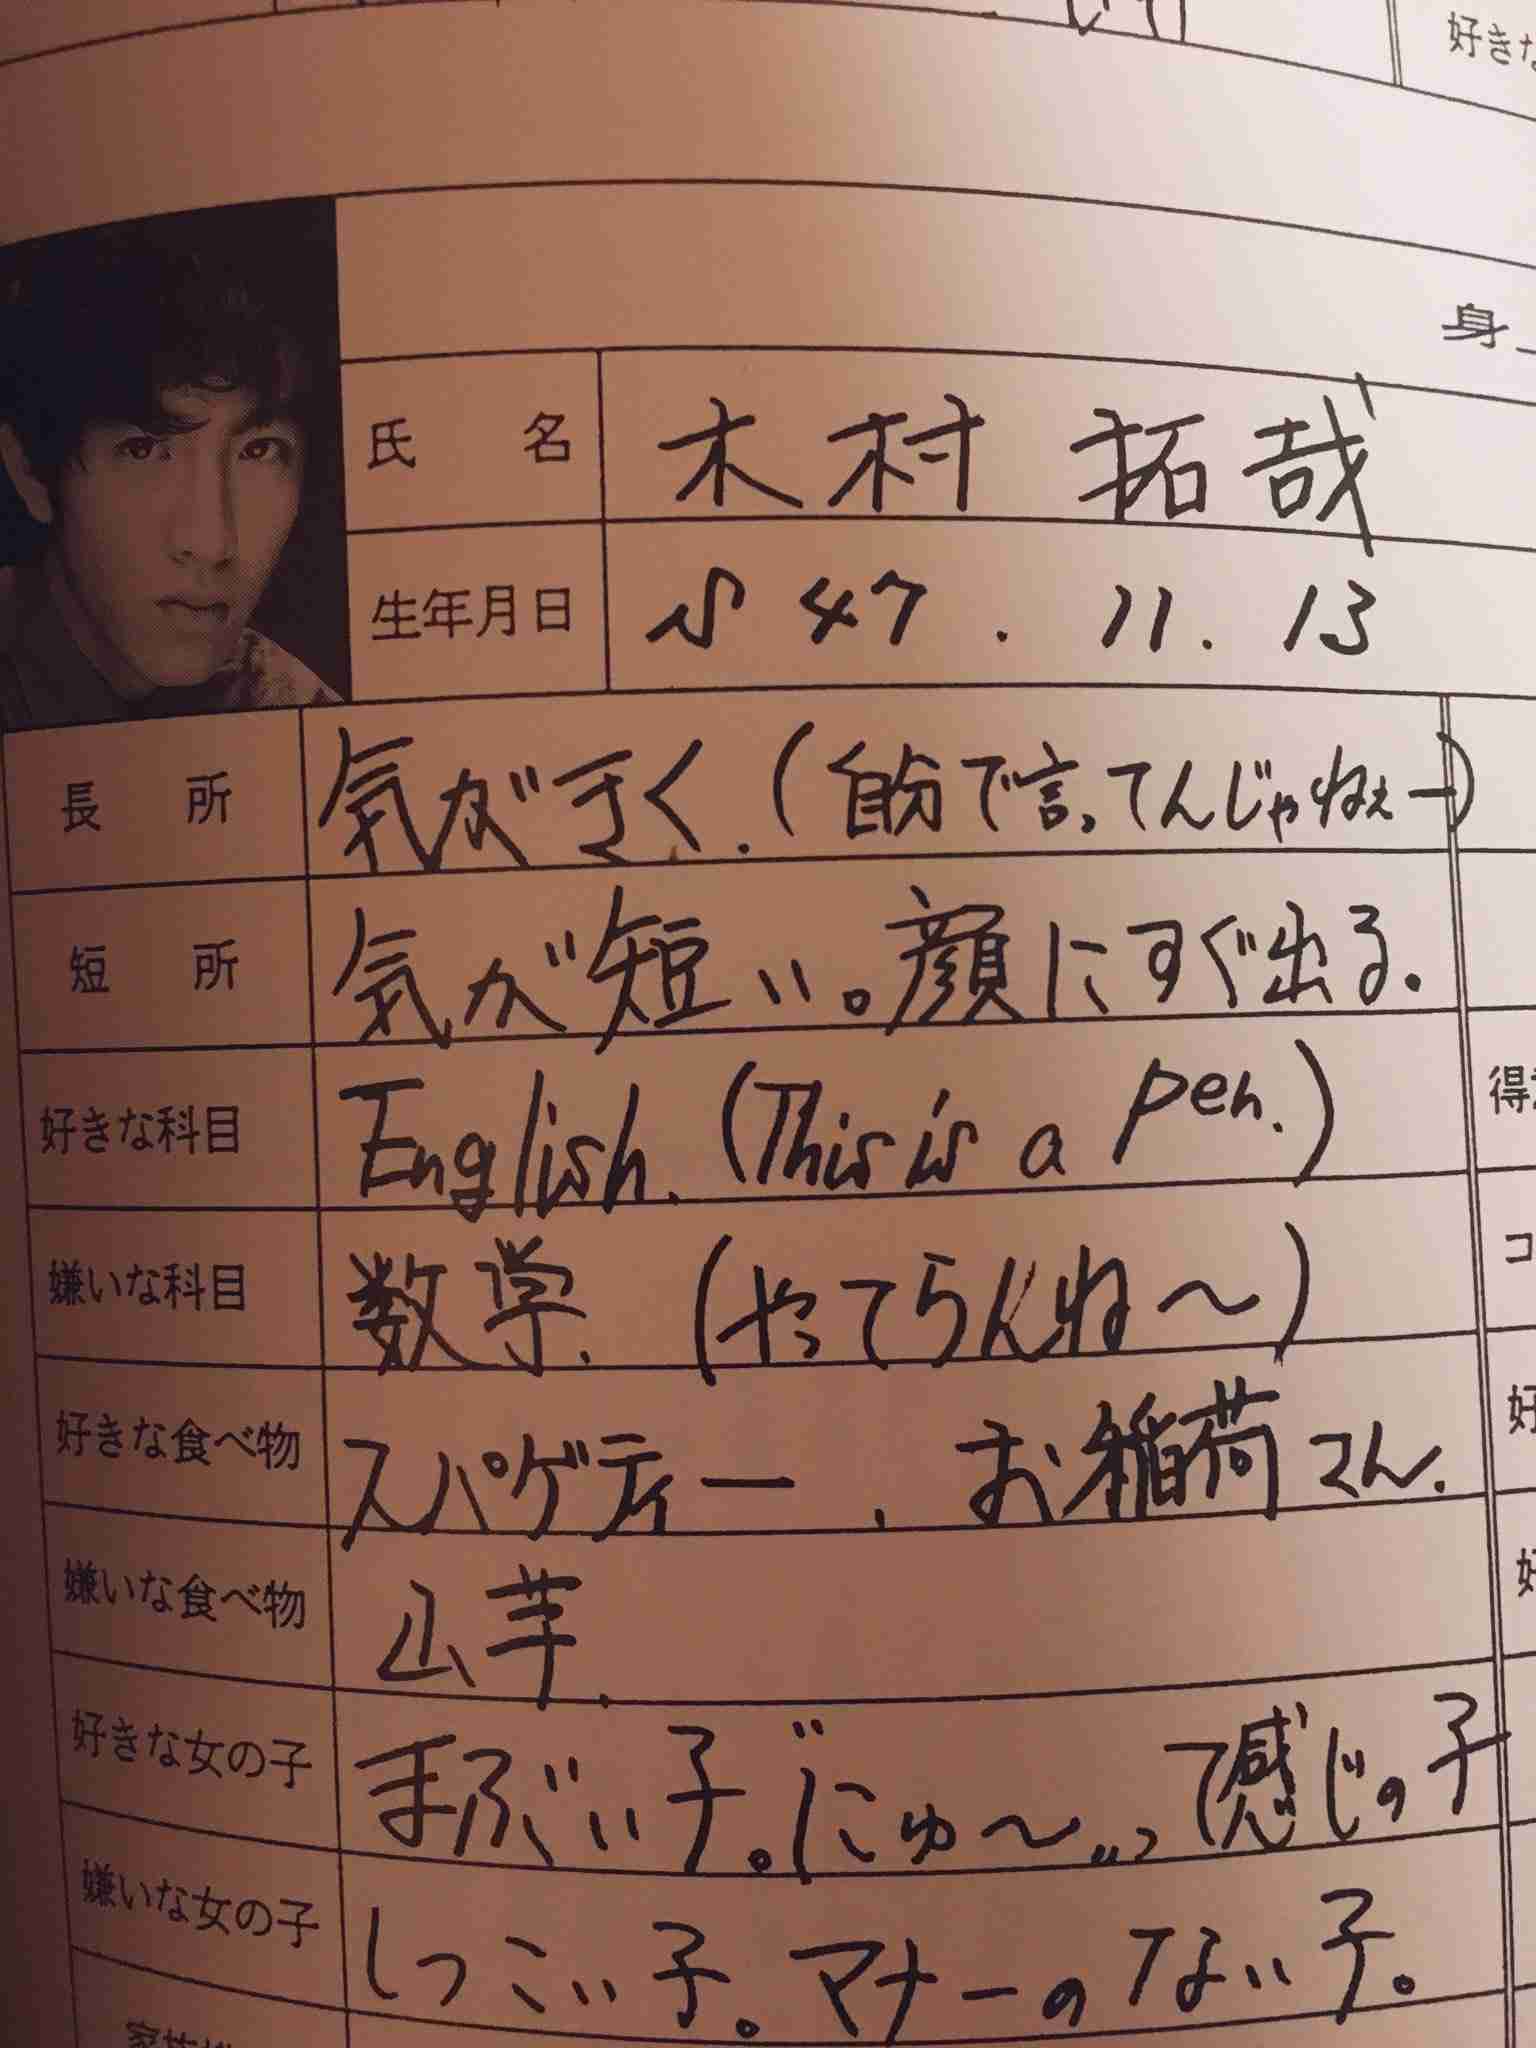 好きな
身
氏名 木村 拓哉
生年月日 S 47. 11. 13
長所 気がきく.(自分で言ってんじゃねぇー)
短所 気が短い。顔にすぐ出る.
好きな科目 English. (This is a pen.)
得
嫌いな科目 数学. (やってらんね〜)
コ
好きな食べ物 スパゲティー、お稲荷さん.
好
嫌いな食べ物 山芋.
好
好きな女の子 まぶい子。
嫌いな女の子 しつこい子。マナーのない子。